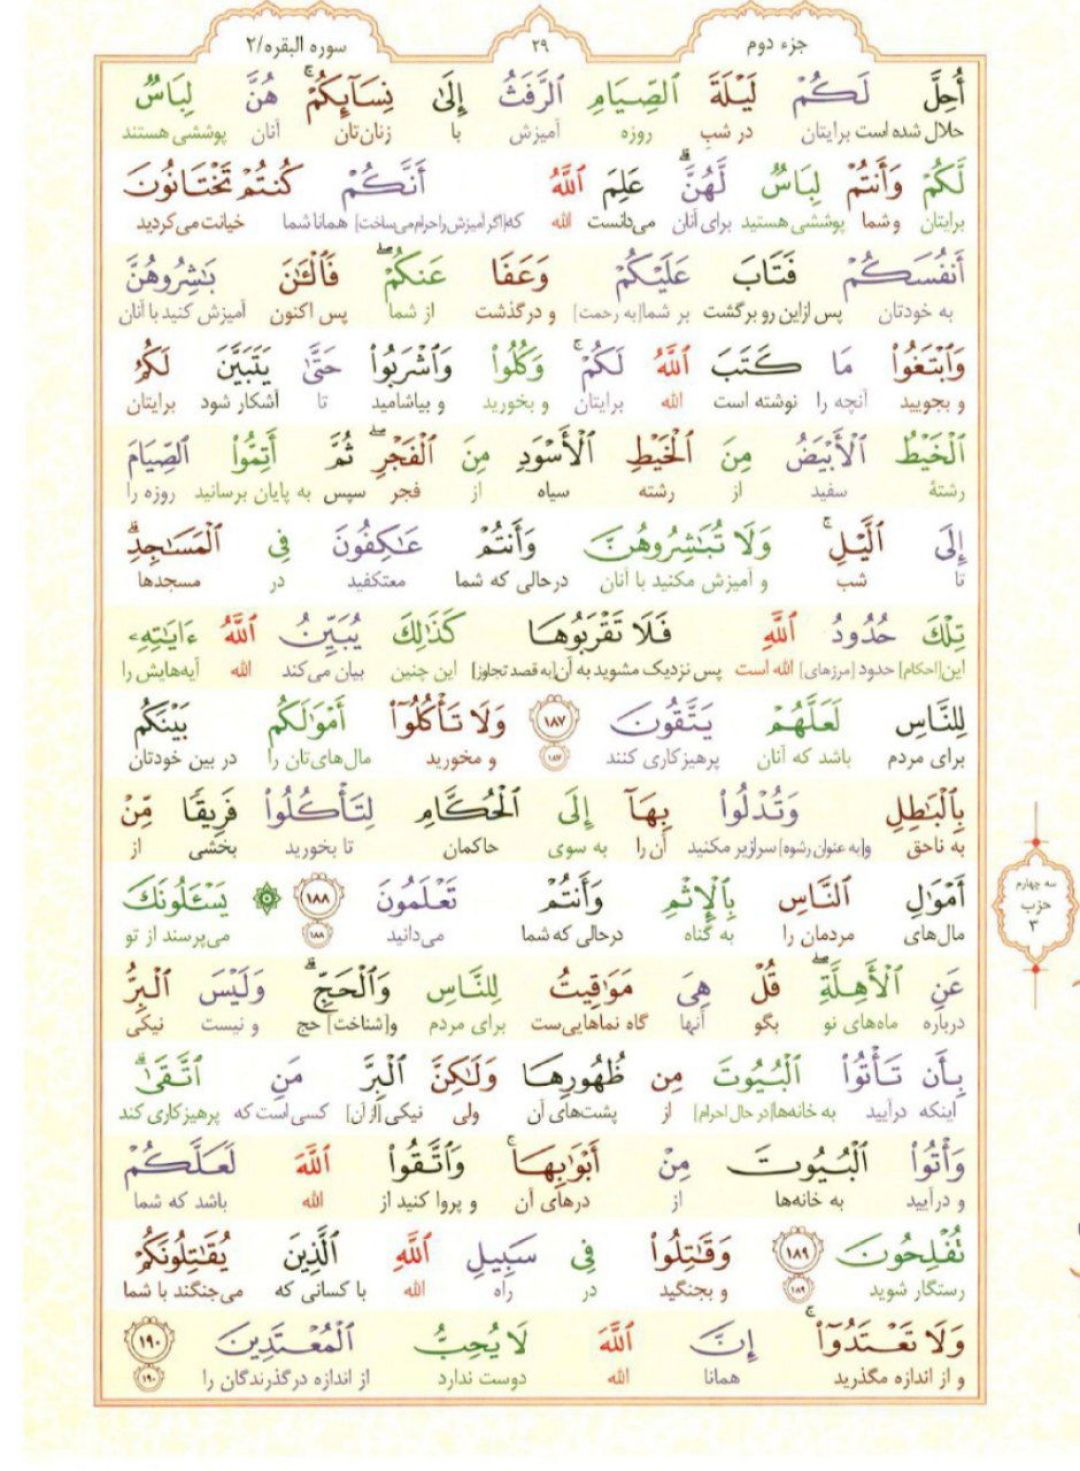 جزء دوم
٢٩
سوره البقره/٢
أُحِلَّ لَكُمْ لَيْلَةَ ٱلصِّيَامِ ٱلرَّفَثُ إِلَىٰ نِسَآئِكُمْ ۚ هُنَّ لِبَاسٌ
حلال شده است برایتان در شب روزه آمیزش با زنان‌تان آنان پوششی هستند
لَّكُمْ وَأَنتُمْ لِبَاسٌ لَّهُنَّ ۗ عَلِمَ ٱللَّهُ أَنَّكُمْ كُنتُمْ تَخْتَانُونَ
برایتان و شما پوششی هستید برای آنان می‌دانست الله که[اگر آمیزش را حرام می‌ساخت] همانا شما خیانت می‌کردید
أَنفُسَكُمْ فَتَابَ عَلَيْكُمْ وَعَفَا عَنكُمْ ۖ فَٱلْـَٰٔنَ بَـٰشِرُوهُنَّ
به خودتان پس ازاین رو برگشت بر شما[به رحمت] و درگذشت از شما پس اکنون آمیزش کنید با آنان
وَٱبْتَغُوا۟ مَا كَتَبَ ٱللَّهُ لَكُمْ ۚ وَكُلُوا۟ وَٱشْرَبُوا۟ حَتَّىٰ يَتَبَيَّنَ لَكُمُ
و بجویید آنچه را نوشته است الله برایتان و بخورید و بیاشامید تا آشکار شود برایتان
ٱلْخَيْطُ ٱلْأَبْيَضُ مِنَ ٱلْخَيْطِ ٱلْأَسْوَدِ مِنَ ٱلْفَجْرِ ۖ ثُمَّ أَتِمُّوا۟ ٱلصِّيَامَ
رشتهٔ سفید از رشته سیاه از فجر سپس به پایان برسانید روزه را
إِلَى ٱلَّيْلِ ۚ وَلَا تُبَـٰشِرُوهُنَّ وَأَنتُمْ عَـٰكِفُونَ فِى ٱلْمَسَـٰجِدِ ۗ
تا شب و آمیزش مکنید با آنان درحالی که شما معتکفید در مسجدها
تِلْكَ حُدُودُ ٱللَّهِ فَلَا تَقْرَبُوهَا كَذَٰلِكَ يُبَيِّنُ ٱللَّهُ ءَايَـٰتِهِۦ
این[احکام] حدود [مرزهای] الله است پس نزدیک مشوید به آن[به قصد تجاوز] این چنین بیان می‌کند الله آیه‌هایش را
لِلنَّاسِ لَعَلَّهُمْ يَتَّقُونَ ١٨٧ وَلَا تَأْكُلُوٓا۟ أَمْوَٰلَكُم بَيْنَكُم
برای مردم باشد که آنان پرهیزکاری کنند ١٨٧ و مخورید مال‌های‌تان را در بین خودتان
بِٱلْبَـٰطِلِ وَتُدْلُوا۟ بِهَآ إِلَى ٱلْحُكَّامِ لِتَأْكُلُوا۟ فَرِيقًا مِّنْ
به ناحق و[به عنوان رشوه] سرازیر مکنید آن را به سوی حاکمان تا بخورید بخشی از
أَمْوَٰلِ ٱلنَّاسِ بِٱلْإِثْمِ وَأَنتُمْ تَعْلَمُونَ ١٨٨ يَسْـَٔلُونَكَ
مال‌های مردمان را به گناه درحالی که شما می‌دانید ١٨٨ می‌پرسند از تو
سه چهارم
حزب
٣
عَنِ ٱلْأَهِلَّةِ ۖ قُلْ هِىَ مَوَٰقِيتُ لِلنَّاسِ وَٱلْحَجِّ ۗ وَلَيْسَ ٱلْبِرُّ
درباره ماه‌های نو بگو آنها گاه نماهایی‌ست برای مردم و[شناخت] حج و نیست نیکی
بِأَن تَأْتُوا۟ ٱلْبُيُوتَ مِن ظُهُورِهَا وَلَـٰكِنَّ ٱلْبِرَّ مَنِ ٱتَّقَىٰ ۗ
اینکه درآیید به خانه‌ها[در حال احرام] از پشت‌های آن ولی نیکی [از آن] کسی است که پرهیزکاری کند
وَأْتُوا۟ ٱلْبُيُوتَ مِنْ أَبْوَٰبِهَا ۚ وَٱتَّقُوا۟ ٱللَّهَ لَعَلَّكُمْ
و درآیید به خانه‌ها از درهای آن و پروا کنید از الله باشد که شما
تُفْلِحُونَ ١٨٩ وَقَـٰتِلُوا۟ فِى سَبِيلِ ٱللَّهِ ٱلَّذِينَ يُقَـٰتِلُونَكُمْ
رستگار شوید ١٨٩ و بجنگید در راه الله با کسانی که می‌جنگند با شما
وَلَا تَعْتَدُوٓا۟ ۚ إِنَّ ٱللَّهَ لَا يُحِبُّ ٱلْمُعْتَدِينَ ١٩٠
و از اندازه مگذرید همانا الله دوست ندارد از اندازه درگذرندگان را ١٩٠